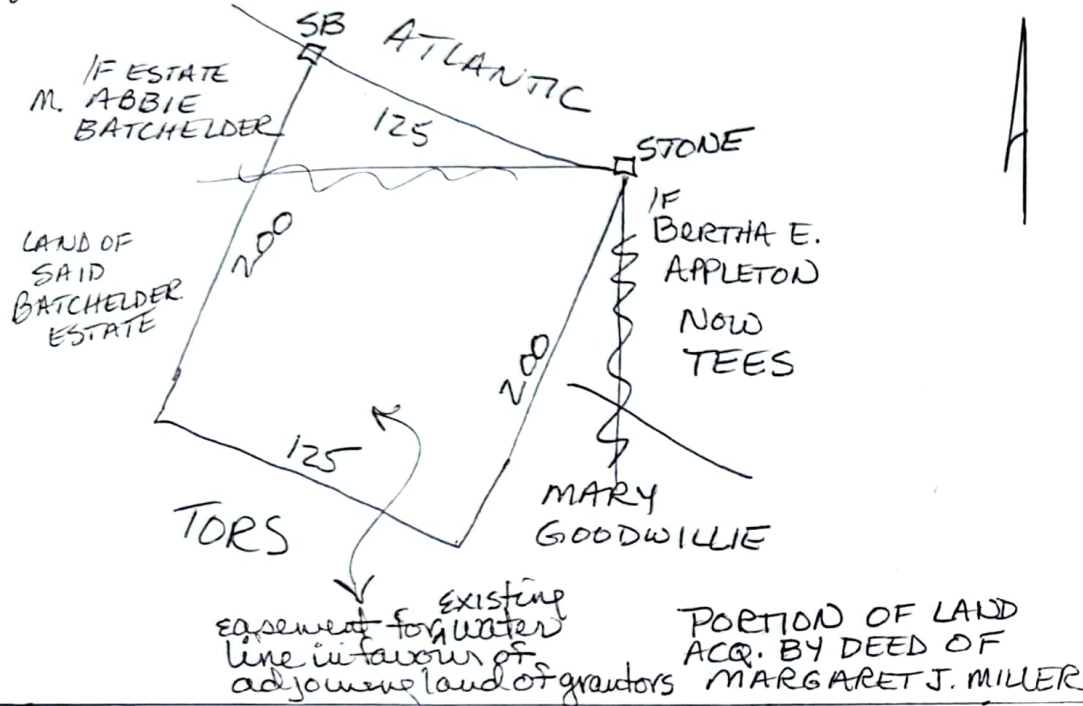 SB
ATLANTIC
/F ESTATE
M. ABBIE
BATCHELDER
125
STONE
/F
BERTHA E.
APPLETON
NOW
TEES
LAND OF
SAID
BATCHELDER
ESTATE
200
200
125
TORS
MARY
GOODWILLIE
existing
easement for water
line in favour of
adjoining land of grantors
PORTION OF LAND
ACQ. BY DEED OF
MARGARET J. MILLER